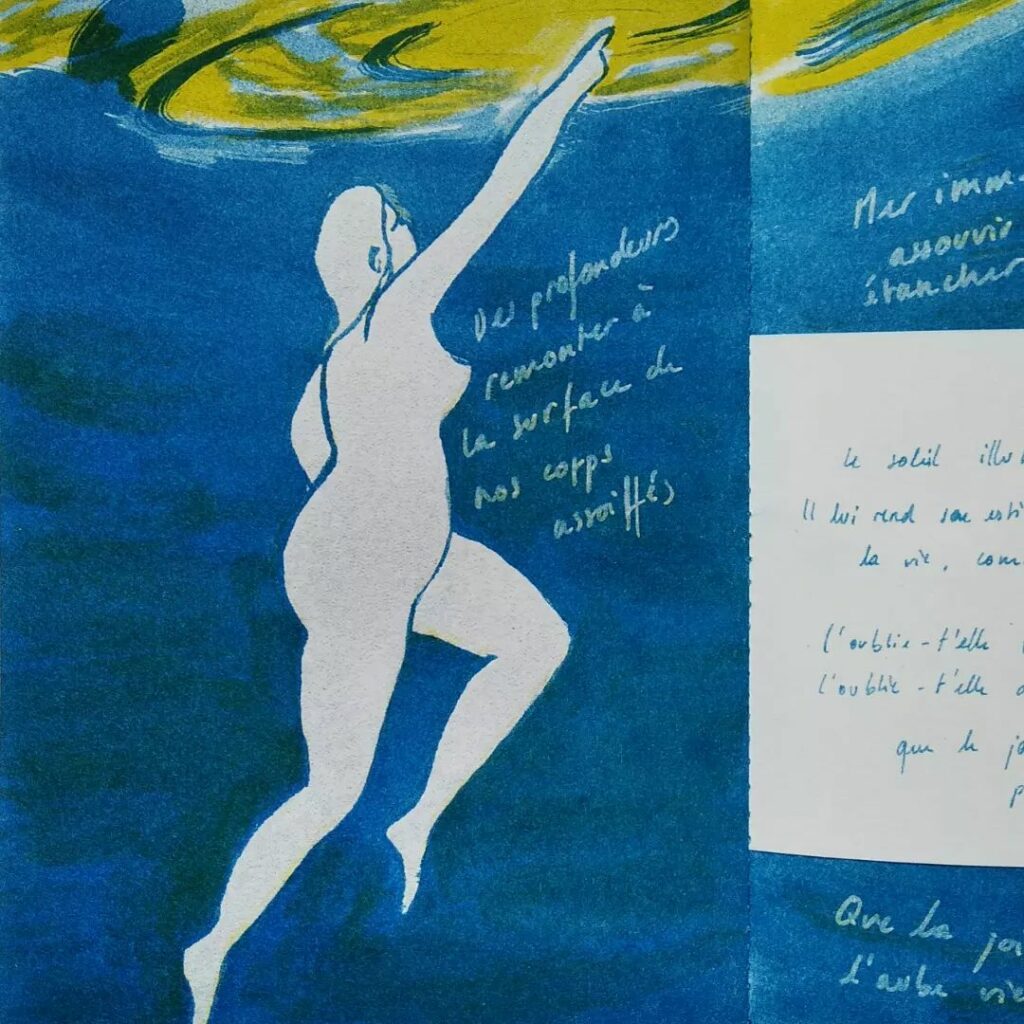 Des profondeurs
remonter à
la surface de
nos corps
assoiffés
Mer imm-
assouvir
étancher
le soleil illu
Il lui rend son esti
la vie, com
l'oublie-t'elle
l'oublie-t'elle d
que le jo
p
Que la jou
l'aube vie